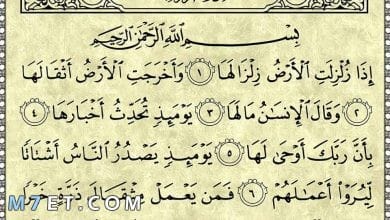 بِسْمِ ٱللَّهِ ٱلرَّحْمَٰنِ ٱلرَّحِيمِ
إِذَا زُلْزِلَتِ ٱلْأَرْضُ زِلْزَالَهَا ١ وَأَخْرَجَتِ ٱلْأَرْضُ أَثْقَالَهَا
٢ وَقَالَ ٱلْإِنسَٰنُ مَا لَهَا ٣ يَوْمَئِذٍ تُحَدِّثُ أَخْبَارَهَا ٤
بِأَنَّ رَبَّكَ أَوْحَىٰ لَهَا ٥ يَوْمَئِذٍ يَصْدُرُ ٱلنَّاسُ أَشْتَاتًا
لِّيُرَوْا۟ أَعْمَٰلَهُمْ ٦ فَمَن يَعْمَلْ مِثْقَالَ ذَرَّةٍ خَيْرًا
M7ET.COM